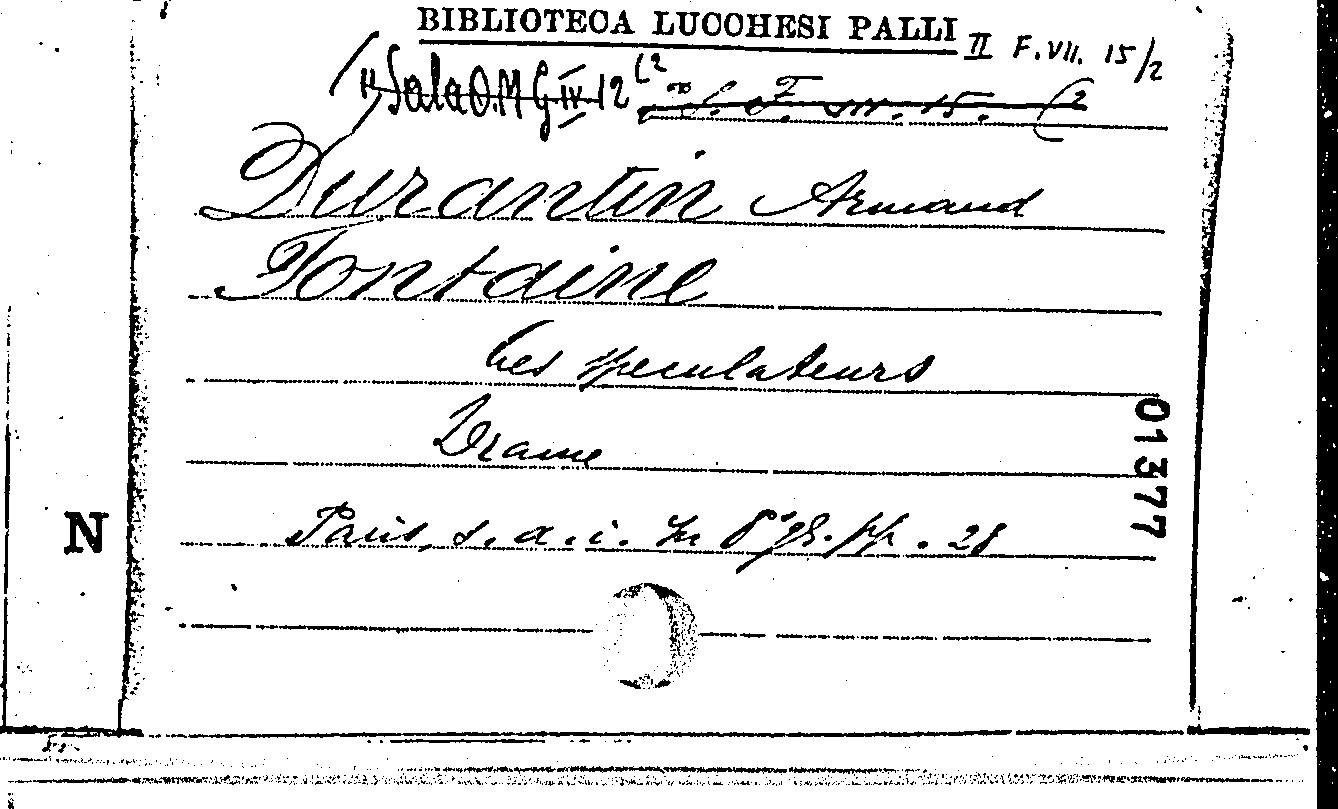 BIBLIOTECA LUCCHESI PALLI
II F. VII. 15/2
Sala O.M G IV 12 (2
F. VII. 15. (2
Durantin Armand
Fontaine
Les speculateurs
Drame
Paris, s. a. i. in 8° gr. pp. 28
01377
N